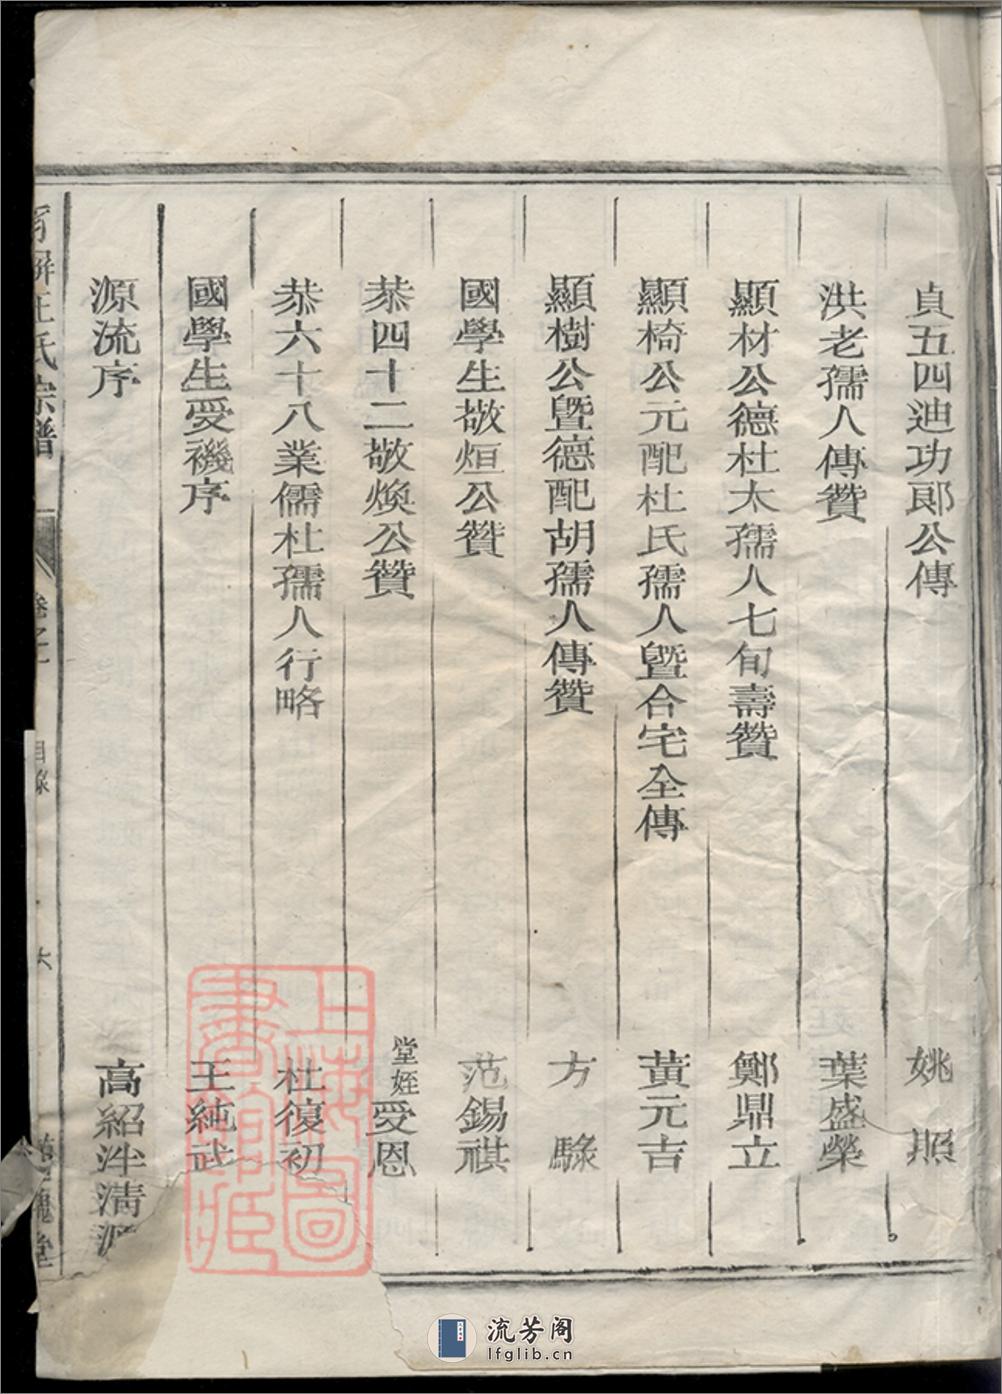 貞五四迪功郎公傳 姚照
洪老孺人傳贊 葉盛榮
顯材公德杜太孺人七旬壽贊 鄭鼎立
顯椅公元配杜氏孺人曁合宅全傳 黃元吉
顯樹公曁德配胡孺人傳贊 方騄
國學生敬烜公贊 范錫祺
恭四十二敬煥公贊 堂姪受恩
恭六十八業儒杜孺人行略 杜復初
國學生受禨序 王純武
源流序 高紹泮清源
汪氏宗譜 卷之一 目錄 六 堂
上海圖書館藏
流芳阁
lfglib.cn